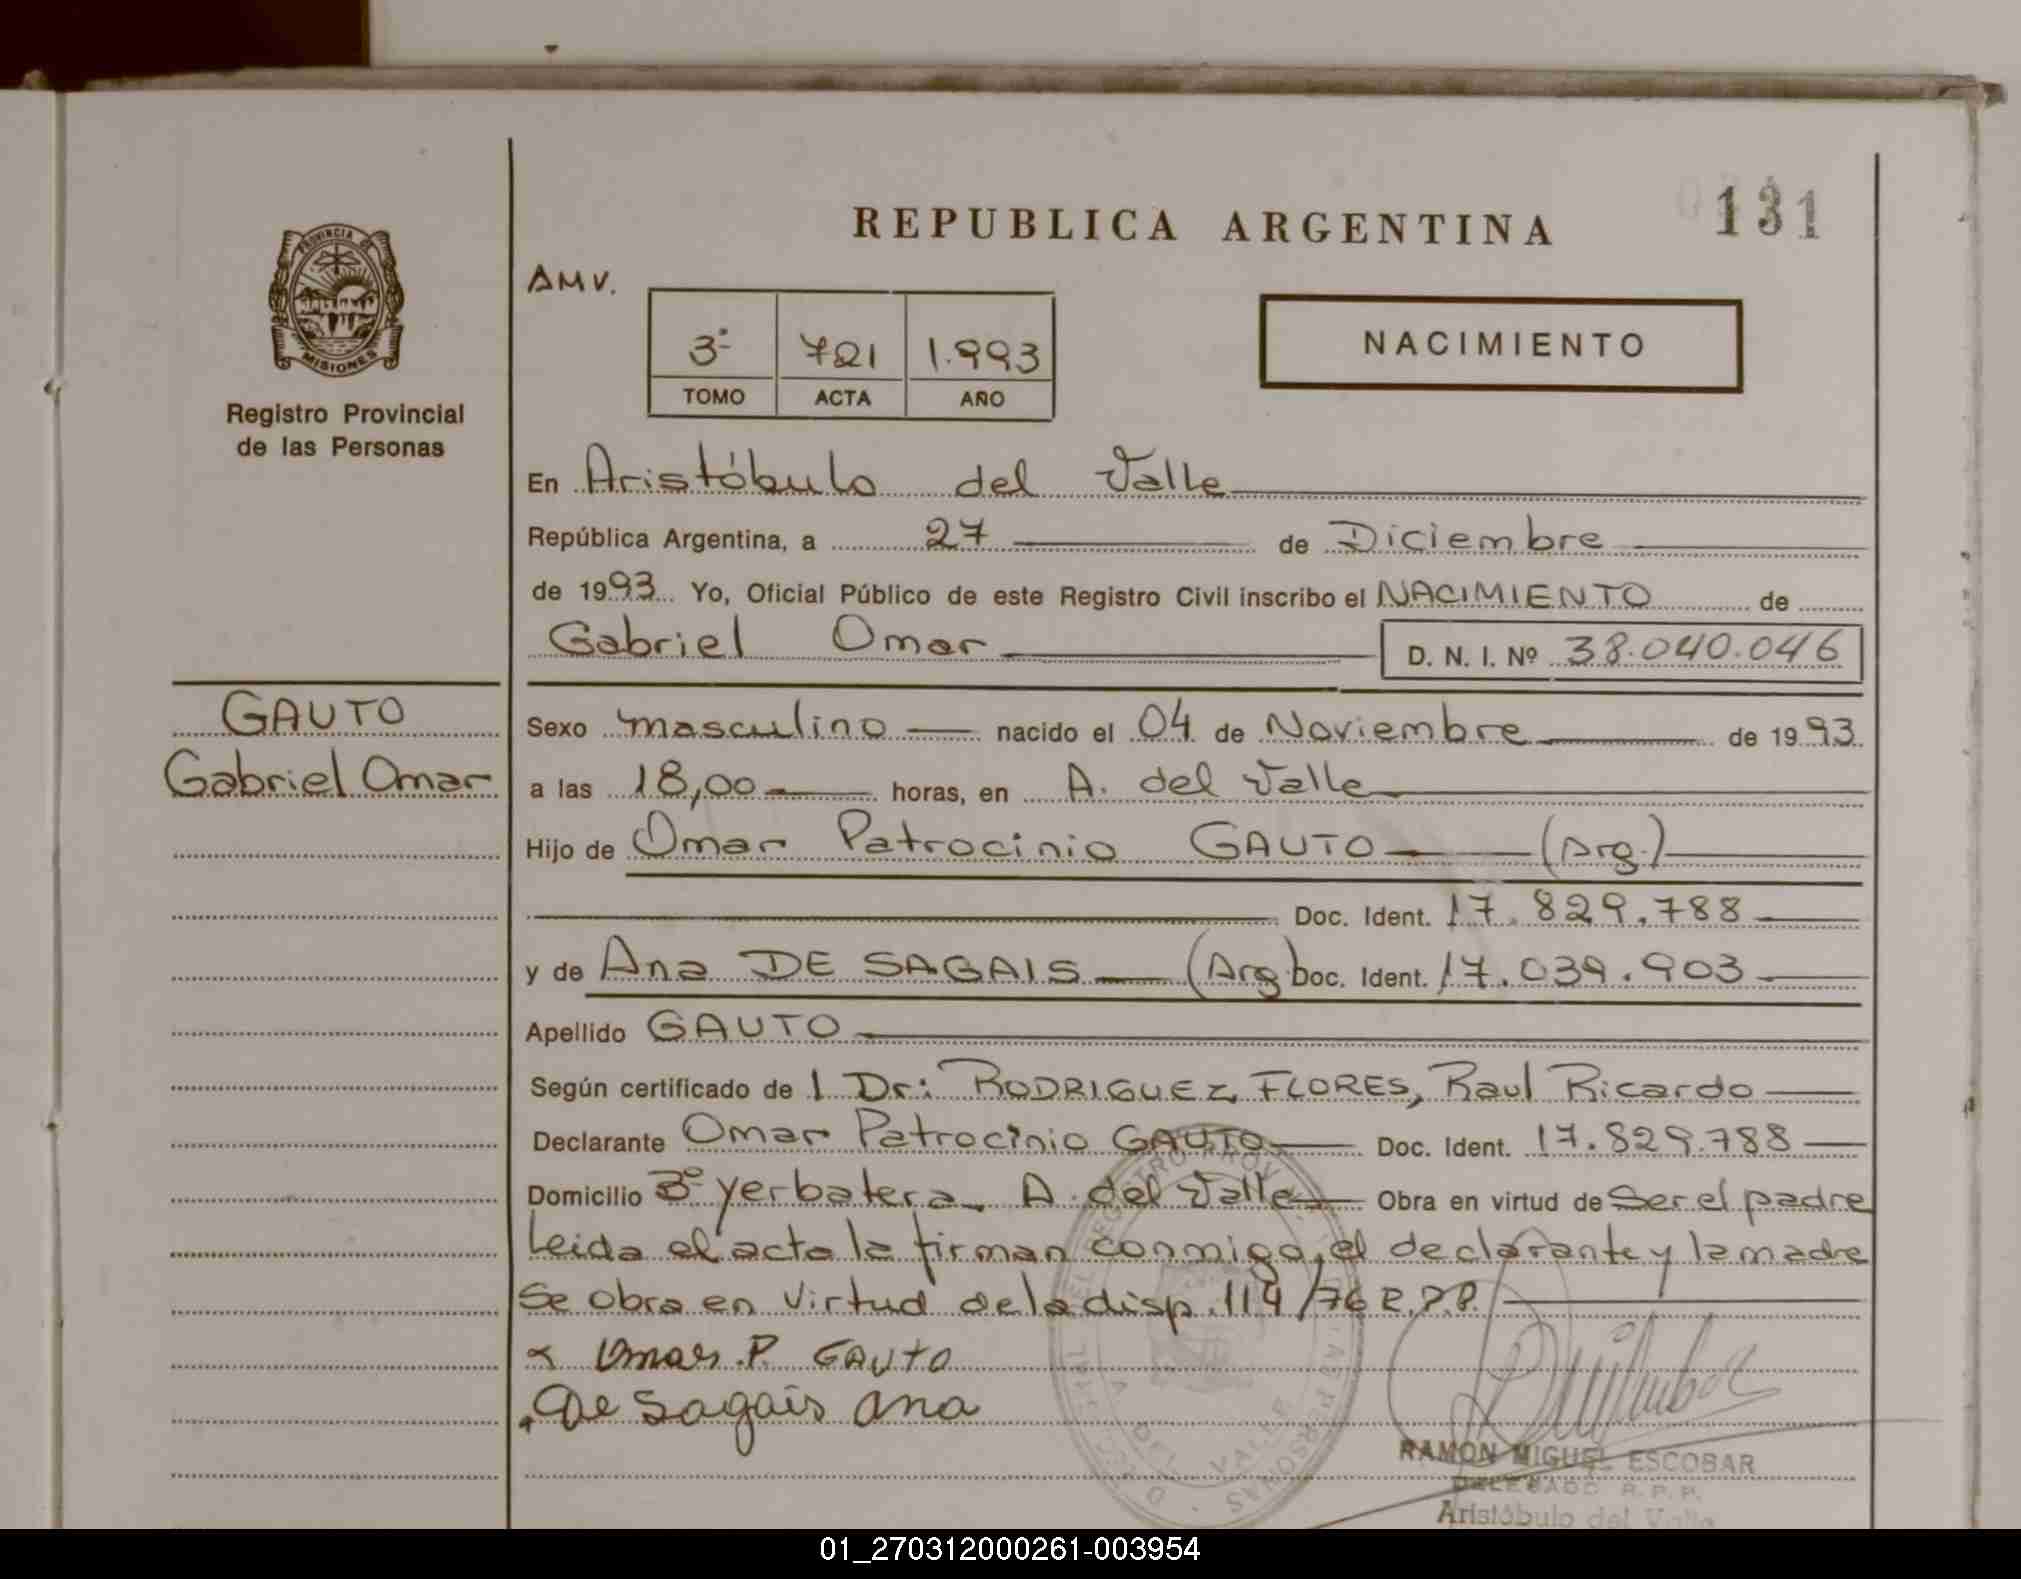 131
REPUBLICA ARGENTINA
PROVINCIA DE
MISIONES
Registro Provincial
de las Personas
AMV.
3º 721 1.993
TOMO ACTA AÑO
NACIMIENTO
En Aristóbulo del Valle
República Argentina, a 27 de Diciembre
de 1993 Yo, Oficial Público de este Registro Civil inscribo el NACIMIENTO de
Gabriel Omar D. N. I. Nº 38.040.046
GAUTO
Gabriel Omar
Sexo masculino nacido el 04 de Noviembre de 1993
a las 18,00 horas, en A. del Valle
Hijo de Omar Patrocinio GAUTO (Arg.)
Doc. Ident. 17.829.788
y de Ana DE SAGAIS (Arg) Doc. Ident. 17.039.903
Apellido GAUTO
Según certificado de 1 Dr: RODRIGUEZ FLORES, Raul Ricardo
Declarante Omar Patrocinio GAUTO Doc. Ident. 17.829.788
Domicilio 3º Yerbatera A. del Valle Obra en virtud de Ser el padre
Leida el acta la firman conmigo, el declarante y la madre
Se obra en virtud de la disp. 114/76 R.P.P.
Omar P. GAUTO
De Sagais Ana
RAMON MIGUEL ESCOBAR
DELEGADO R. P. P.
Aristóbulo del Valle
01_270312000261-003954